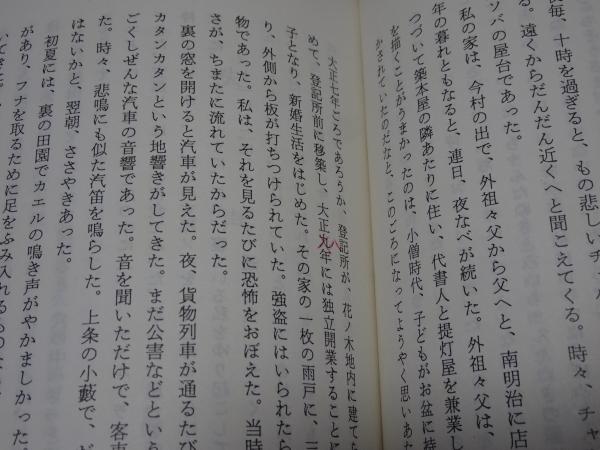 夜毎、十時を過ぎると、もの悲しいチャル
る。遠くからだんだん近くへと聞こえてくる。時々、チャ
ソバの屋台であった。
私の家は、今村の出で、外祖父から父へと、南明治に店
年の暮れともなると、連日、夜なべが続いた。外祖父は、
つづいて築本屋の隣あたりに住い、代書人と提灯屋を兼業し
を描くことがうまかったのは、小僧時代、子どもがお盆に持
かされていたのだなと、このごろになってようやく思いあた
大正七年ごろであろうか、登記所が、花ノ木地内に建てら
めて、登記所前に移築し、大正九年には独立開業することに
八
子となり、新婚生活をはじめた。その家の一枚の雨戸に、三
り、外側から板が打ちつけられていた。強盗にはいられたら
物であった。私は、それを見るたびに恐怖をおぼえた。当時
さが、ちまたに流れていたからだった。
裏の窓を開けると汽車が見えた。夜、貨物列車が通るたび
カタンカタンという地響きがしてきた。まだ公害などという
ごくしぜんな汽車の音響であった。音を聞いただけで、客車
た。時々、悲鳴にも似た汽笛を鳴らした。上条の小藪で、ど
はないかと、翌朝、ささやきあった。
初夏には、裏の田園でカエルの鳴き声がやかましかった。
があり、フナを取るために足をふみ入れるものなら